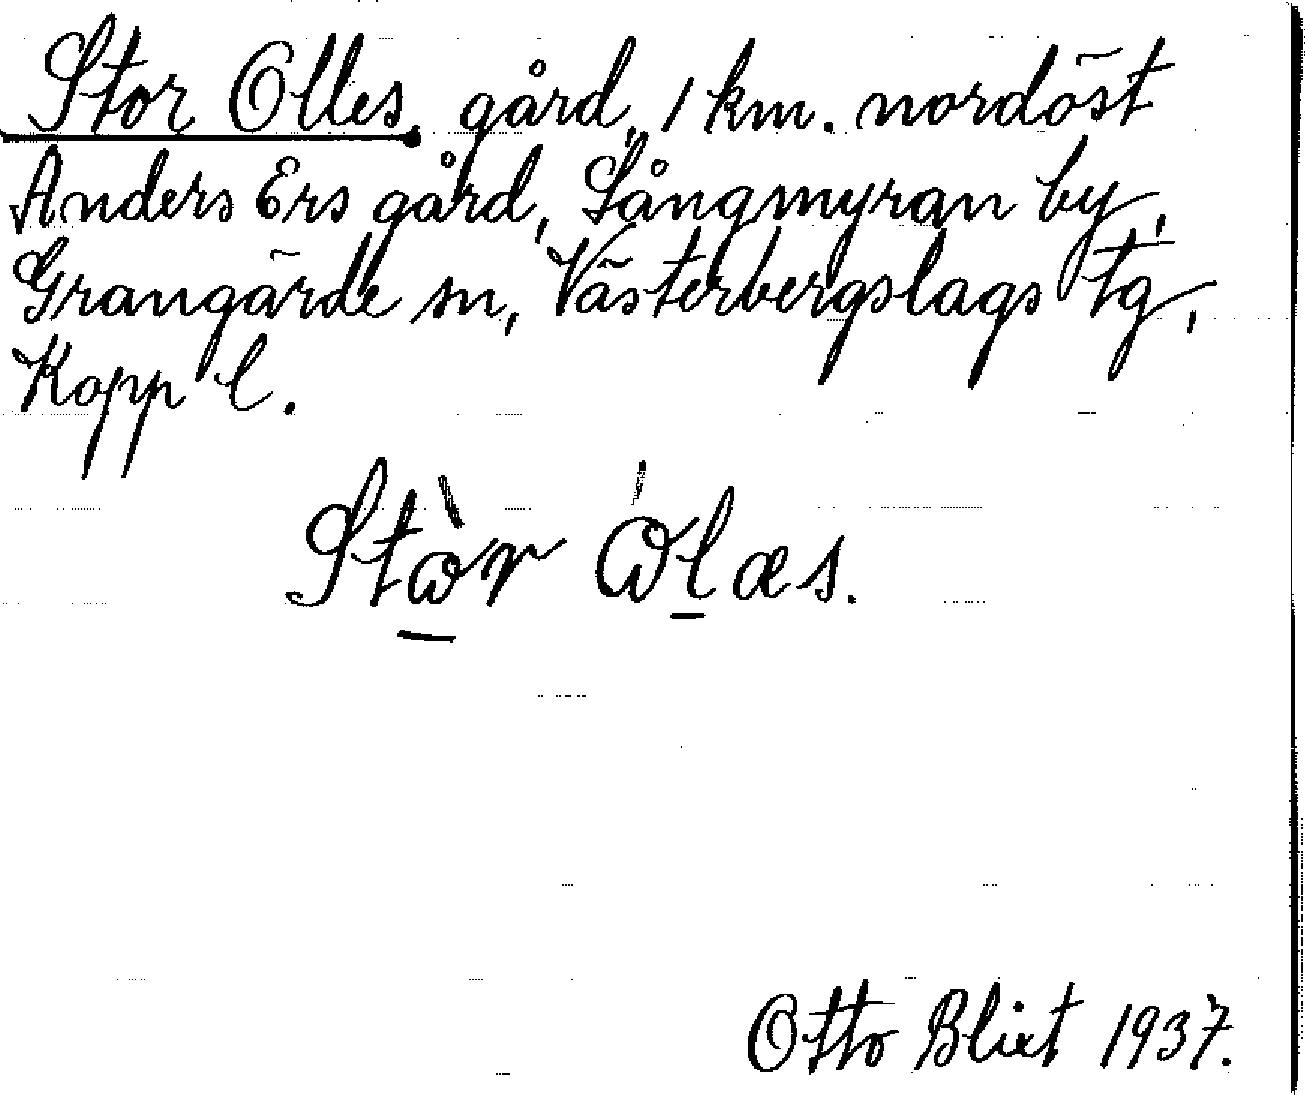 Stor Olles, gård, 1 km. nordöst
Anders Ers gård, Långmyran by,
Grangärde sn, Västerbergslags tg,
Kopp l.
Stɷ̀r ɷ́læs.
Otto Blixt 1937.